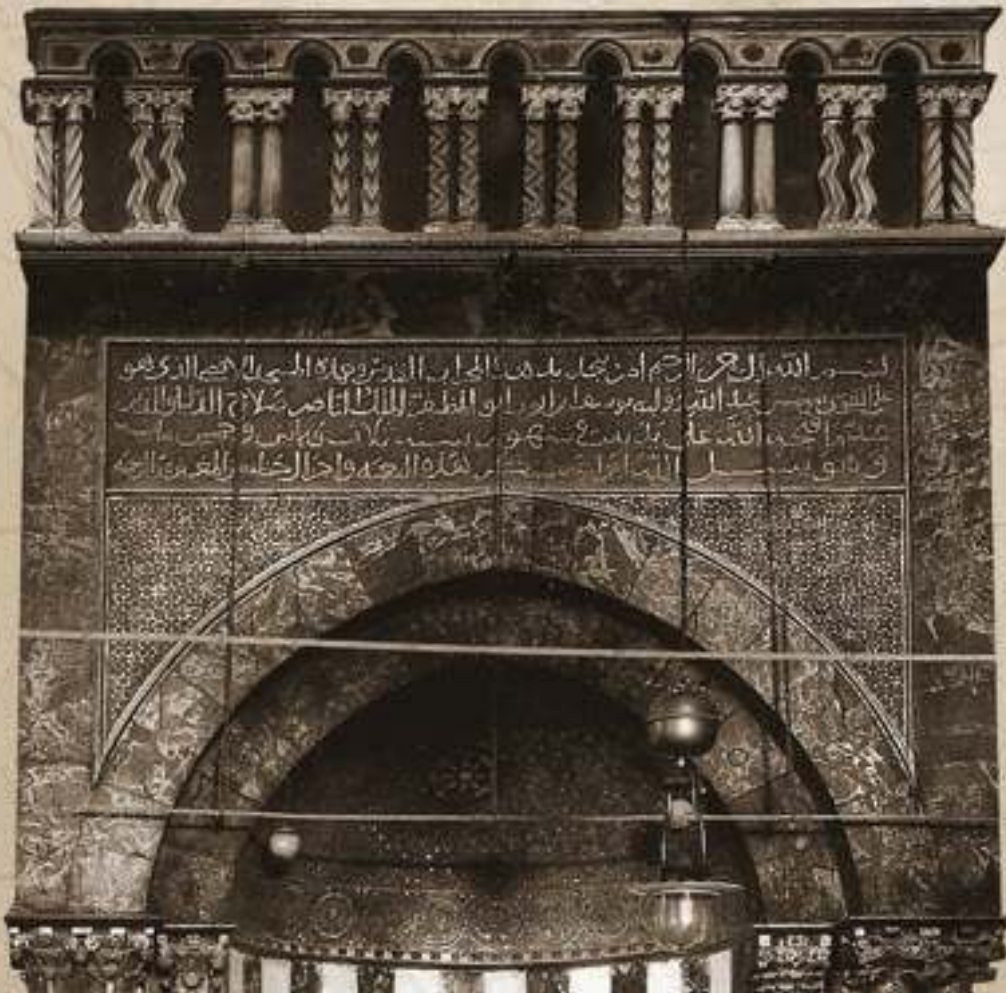 بسم الله الرحمن الرحيم امر بتجديد هذا المحراب المقدس وعمارة المسجد الاقصى الذي هو
على التقوى مؤسس عبد الله ووليه يوسف بن ايوب ابو المظفر الملك الناصر صلاح الدنيا والدين
عندما فتحه الله على يديه في شهور سنة ثلاث وثمانين وخمس مائة
وهو يسأل الله شكر هذه النعمة واجزال حظه من المغفرة والرحمة